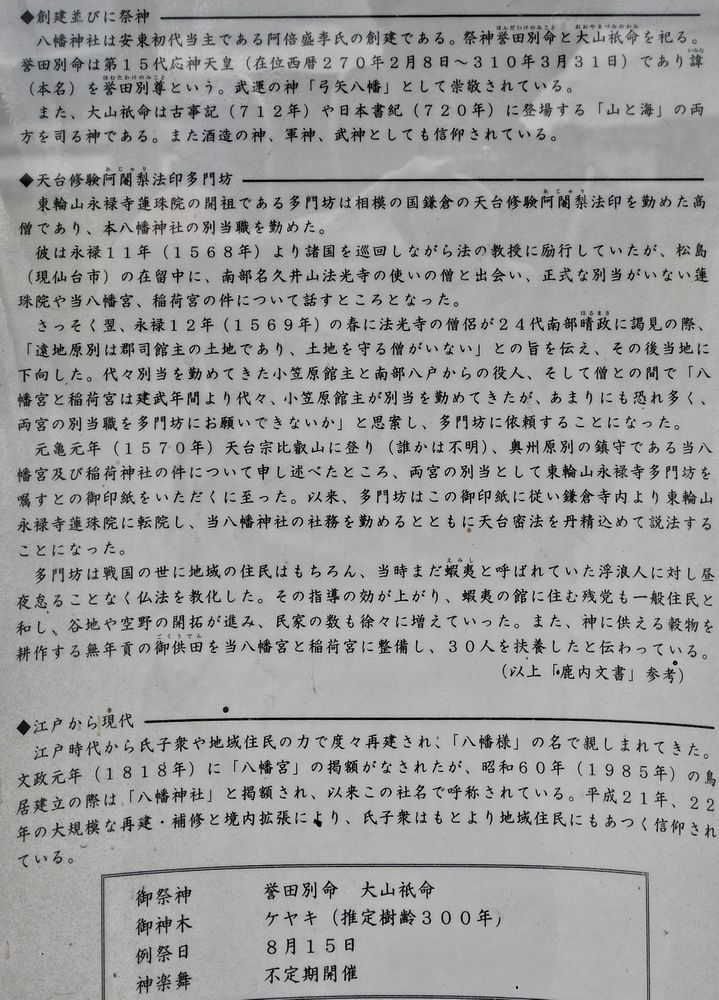 ◆創建並びに祭神
八幡神社は安東初代当主である阿倍盛季氏の創建である。祭神誉田別命と大山祇命を祀る。
誉田別命は第15代応神天皇（在位西暦270年2月8日～310年3月31日）であり諱
（本名）を誉田別尊という。武運の神「弓矢八幡」として崇敬されている。
また、大山祇命は古事記（712年）や日本書紀（720年）に登場する「山と海」の両
方を司る神である。また酒造の神、軍神、武神としても信仰されている。
◆天台修験阿闍梨法印多門坊
東輪山永禄寺蓮珠院の開祖である多門坊は相模の国鎌倉の天台修験阿闍梨法印を勤めた高
僧であり、本八幡神社の別当職を勤めた。
彼は永禄11年（1568年）より諸国を巡回しながら法の教授に励行していたが、松島
（現仙台市）の在留中に、南部名久井山法光寺の使いの僧と出会い、正式な別当がいない蓮
珠院や当八幡宮、稲荷宮の件について話すところとなった。
さっそく翌、永禄12年（1569年）の春に法光寺の僧侶が24代南部晴政に謁見の際、
「遠地原別は郡司館主の土地であり、土地を守る僧がいない」との旨を伝え、その後当地に
下向した。代々別当を勤めてきた小笠原館主と南部八戸からの役人、そして僧との間で「八
幡宮と稲荷宮は建武年間より代々、小笠原館主が別当を勤めてきたが、あまりにも恐れ多く、
両宮の別当職を多門坊にお願いできないか」と思案し、多門坊に依頼することになった。
元亀元年（1570年）天台宗比叡山に登り（誰かは不明）、奥州原別の鎮守である当八
幡宮及び稲荷神社の件について申し述べたところ、両宮の別当として東輪山永禄寺多門坊を
嘱すとの御印紙をいただくに至った。以来、多門坊はこの御印紙に従い鎌倉寺内より東輪山
永禄寺蓮珠院に転院し、当八幡神社の社務を勤めるとともに天台密法を丹精込めて説法する
ことになった。
多門坊は戦国の世に地域の住民はもちろん、当時まだ蝦夷と呼ばれていた浮浪人に対し昼
夜怠ることなく仏法を教化した。その指導の効が上がり、蝦夷の館に住む残党も一般住民と
和し、谷地や空野の開拓が進み、民家の数も徐々に増えていった。また、神に供える穀物を
耕作する無年貢の御供田を当八幡宮と稲荷宮に整備し、30人を扶養したと伝わっている。
（以上「鹿内文書」参考）
◆江戸から現代
江戸時代から氏子衆や地域住民の力で度々再建され、「八幡様」の名で親しまれてきた。
文政元年（1818年）に「八幡宮」の掲額がなされたが、昭和60年（1985年）の鳥
居建立の際は「八幡神社」と掲額され、以来この社名で呼称されている。平成21年、22
年の大規模な再建・補修と境内拡張により、氏子衆はもとより地域住民にもあつく信仰され
ている。
御祭神　誉田別命　大山祇命
御神木　ケヤキ（推定樹齢300年）
例祭日　8月15日
神楽舞　不定期開催